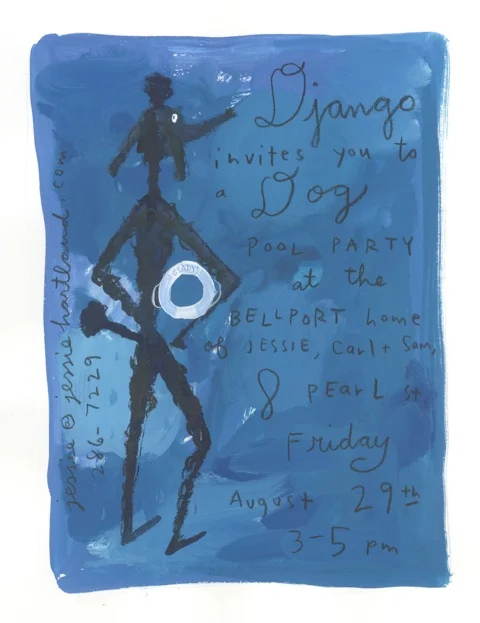 Django
invites you to
a Dog
POOL PARTY
at the
BELLPORT home
of JESSIE, Carl + Sam,
8 PEarL st
Friday
August 29th
3-5 pm
jessie@jessiehartland.com
286-7229